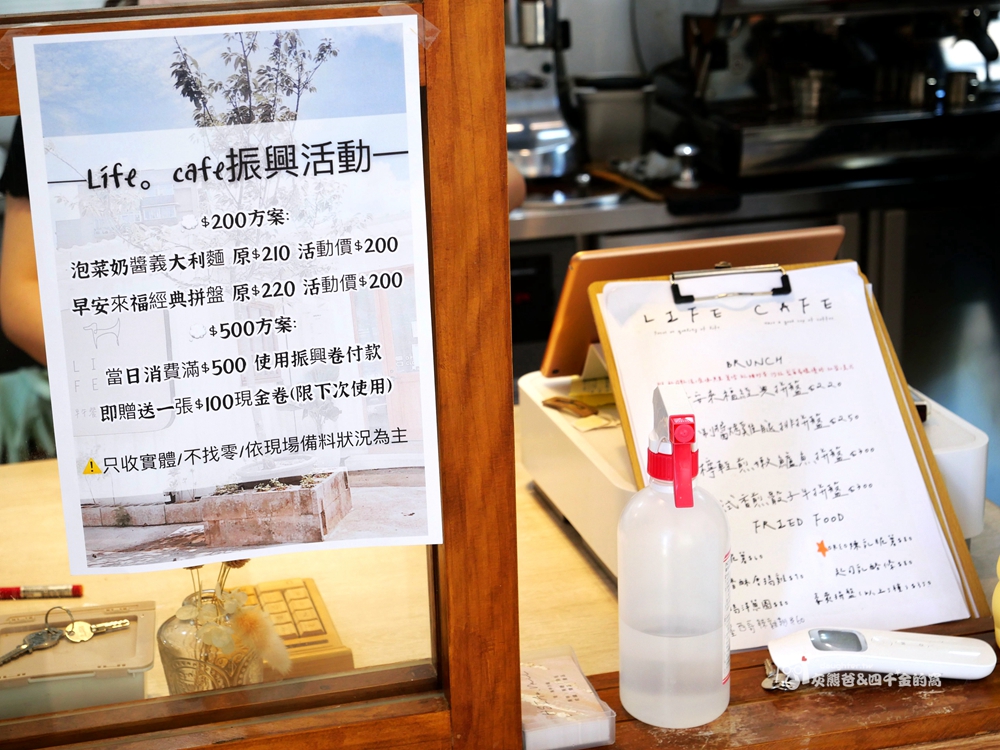 Life。cafe振興活動
$200方案:
泡菜奶醬義大利麵 原$210 活動價$200
早安來福經典拼盤 原$220 活動價$200
$500方案:
當日消費滿$500 使用振興卷付款
即贈送一張$100現金卷(限下次使用)
⚠只收實體/不找零/依現場備料狀況為主
LI
FE
LIFE CAFE
BRUNCH
安來福經典拼盤 $220
醬烤雞腿排拼盤 $250
檸輕煎嫩鱸魚拼盤 $400
式香煎骰子牛拼盤 $400
FRIED FOOD
灰熊爸&四千金的窩